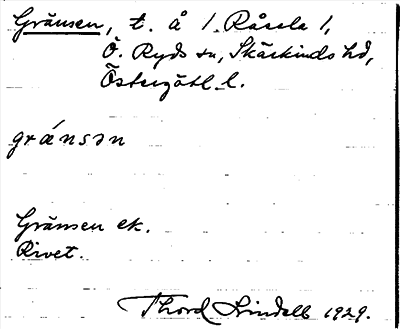 Gränsen, t. å 1 Råsela 1,
Ö. Ryds sn, Skärkinds hd,
Östergötl. l.
gránsən
Gränsen ek.
Rivet.
Thord Lindell 1929.